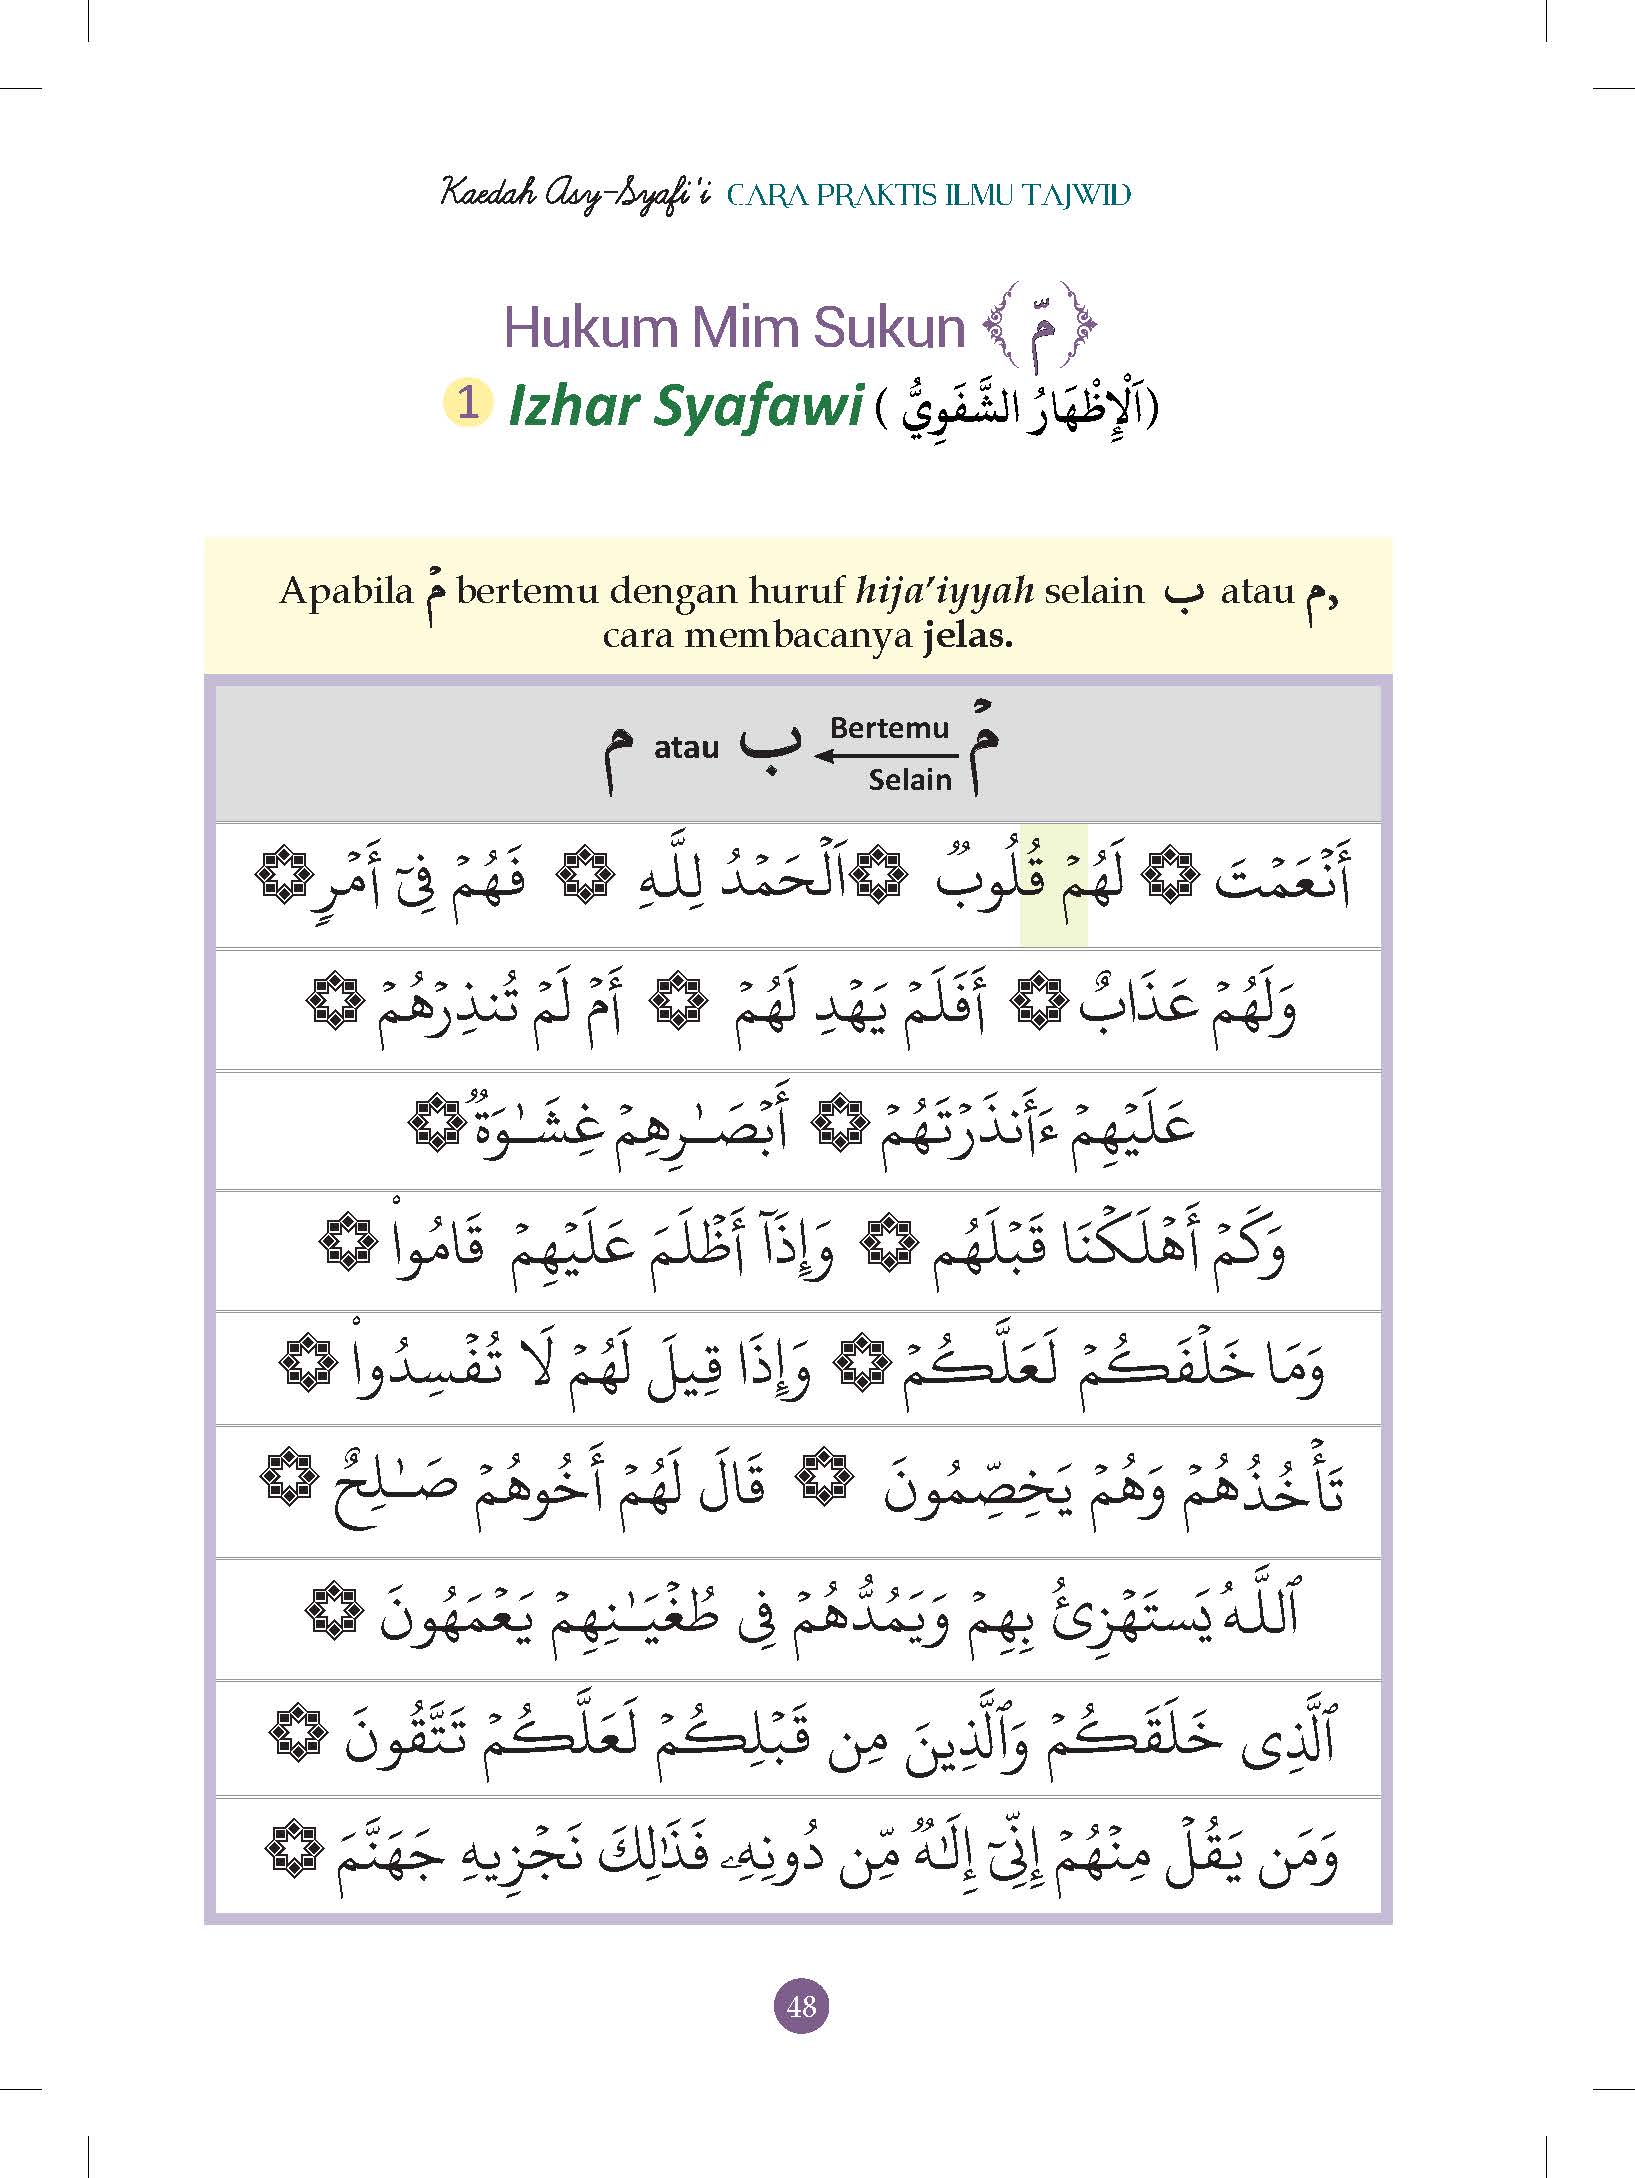 Kaedah Asy-Syafi'i CARA PRAKTIS ILMU TAJWID
Hukum Mim Sukun ﴿ مّ ﴾
1 Izhar Syafawi (اَلْإِظْهَارُ الشَّفَوِيُّ)
Apabila مۡ bertemu dengan huruf hija'iyyah selain ب atau م,
cara membacanya jelas.
مۡ Bertemu Selain ب atau م
أَنۡعَمۡتَ ۞ لَهُمۡ قُلُوبٌ ۞ اَلۡحَمۡدُ لِلَّهِ ۞ فَهُمۡ فِىٓ أَمۡرٍ ۞
وَلَهُمۡ عَذَابٌ ۞ أَفَلَمۡ يَهۡدِ لَهُمۡ ۞ أَمۡ لَمۡ تُنذِرۡهُمۡ ۞
عَلَيۡهِمۡ ءَأَنذَرۡتَهُمۡ ۞ أَبۡصَـٰرِهِمۡ غِشَـٰوَةٌ ۞
وَكَمۡ أَهۡلَكۡنَا قَبۡلَهُم ۞ وَإِذَآ أَظۡلَمَ عَلَيۡهِمۡ قَامُوا۟ ۞
وَمَا خَلۡفَكُمۡ لَعَلَّكُمۡ ۞ وَإِذَا قِيلَ لَهُمۡ لَا تُفۡسِدُوا۟ ۞
تَأۡخُذُهُمۡ وَهُمۡ يَخِصِّمُونَ ۞ قَالَ لَهُمۡ أَخُوهُمۡ صَـٰلِحٌ ۞
ٱللَّهُ يَسۡتَهۡزِئُ بِهِمۡ وَيَمُدُّهُمۡ فِى طُغۡيَـٰنِهِمۡ يَعۡمَهُونَ ۞
ٱلَّذِى خَلَقَكُمۡ وَٱلَّذِينَ مِن قَبۡلِكُمۡ لَعَلَّكُمۡ تَتَّقُونَ ۞
وَمَن يَقُلۡ مِنۡهُمۡ إِنِّىٓ إِلَـٰهٌ مِّن دُونِهِۦ فَذَٰلِكَ نَجۡزِيهِ جَهَنَّمَ ۞
48